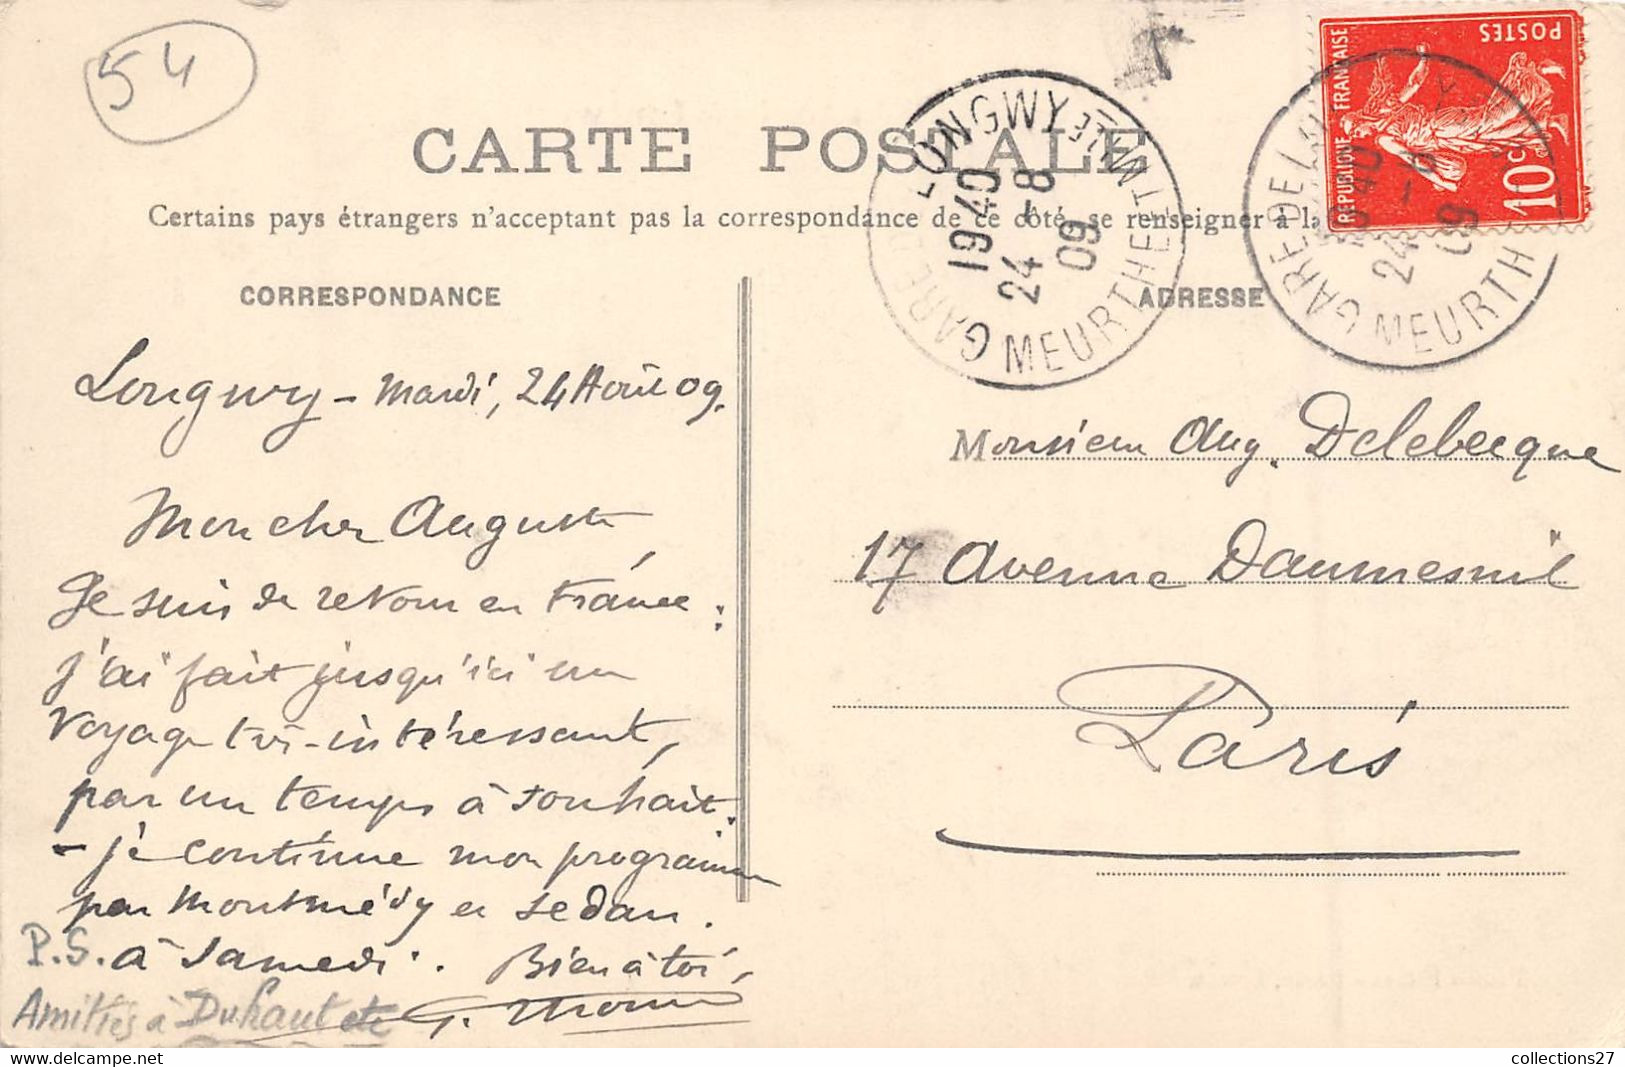 54
CARTE POSTALE
Certains pays étrangers n'acceptant pas la correspondance de ce côté, se renseigner à la
CORRESPONDANCE
ADRESSE
GARE DE LONGWY
MEURTHE ET MLLE
19 40
24 - 8
09
GARE DE LO
MEURTH
40
24 - 8
09
REPUBLIQUE FRANÇAISE
POSTES
10c
Longwy - Mardi, 24 Août 09.
Mon cher Auguste,
Je suis de retour en France :
j'ai fait jusqu'ici un
voyage très-intéressant,
par un temps à souhait.
- je continue mon programme
par Montmédy et Sedan.
à Samedi. Bien à toi,
P.S.
Amitiés à Duhaut etc
G.
Monsieur Aug. Delebecque
17 Avenue Daumesnil
Paris
collections27